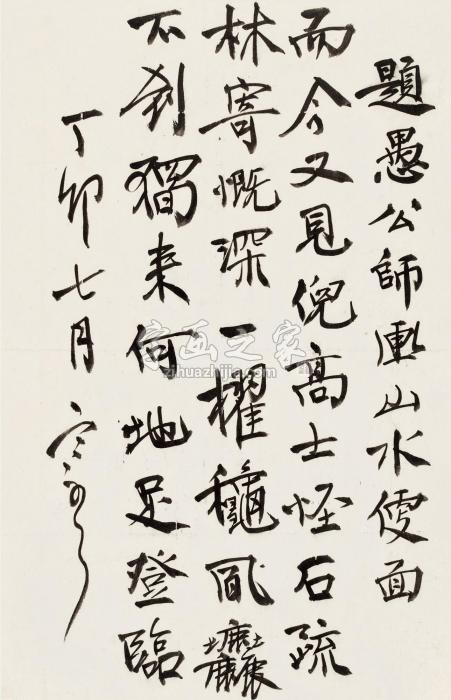 題愚公師畫山水便面
而今又見倪高士怪石疏
林寄慨深一櫂龝風塵
不到獨來何地足登臨
丁卯七月
字画之家
zihuazhijia.com